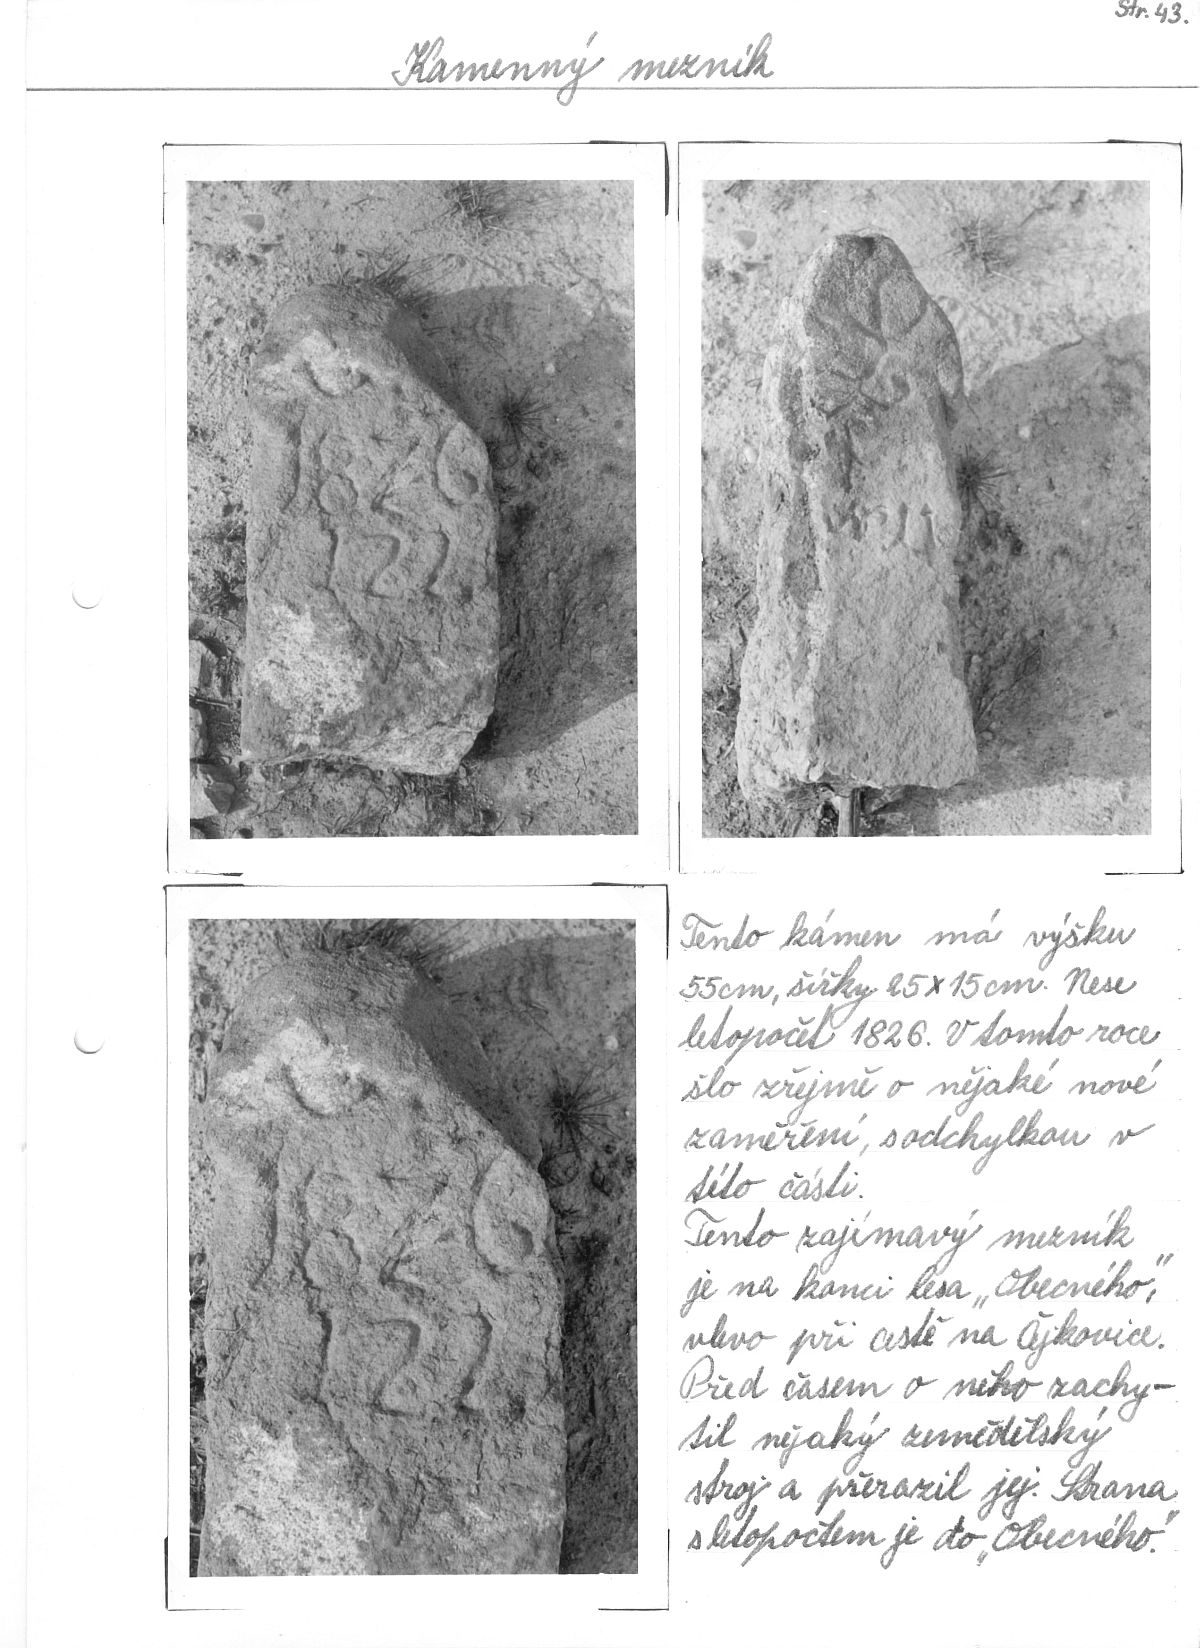 Str. 43.
Kamenný mezník
1826
122
Tento kámen má výšku
55cm, šířky 25x15cm. Nese
letopočet 1826. V tomto roce
šlo zřejmě o nějaké nové
zaměření, s odchylkou v
této části.
Tento zajímavý mezník
je na konci lesa „Obecného",
vlevo při cestě na Čejkovice.
Před časem o něho zachy-
til nějaký zemědělský
stroj a přerazil jej. Strana
s letopočtem je do „Obecného."